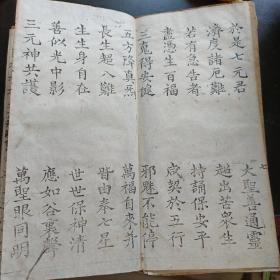 於是七元君
大聖善通靈
濟度諸厄難
超出苦衆生
若有急告者
持誦保安平
盡憑生百福
咸契於五行
三魂得安健
邪魅不能停
五方降真炁
萬福自來并
長生超八難
皆由奉七星
生生身自在
世世保神清
善似光中影
應如谷裏聲
三元神共護
萬聖眼同明